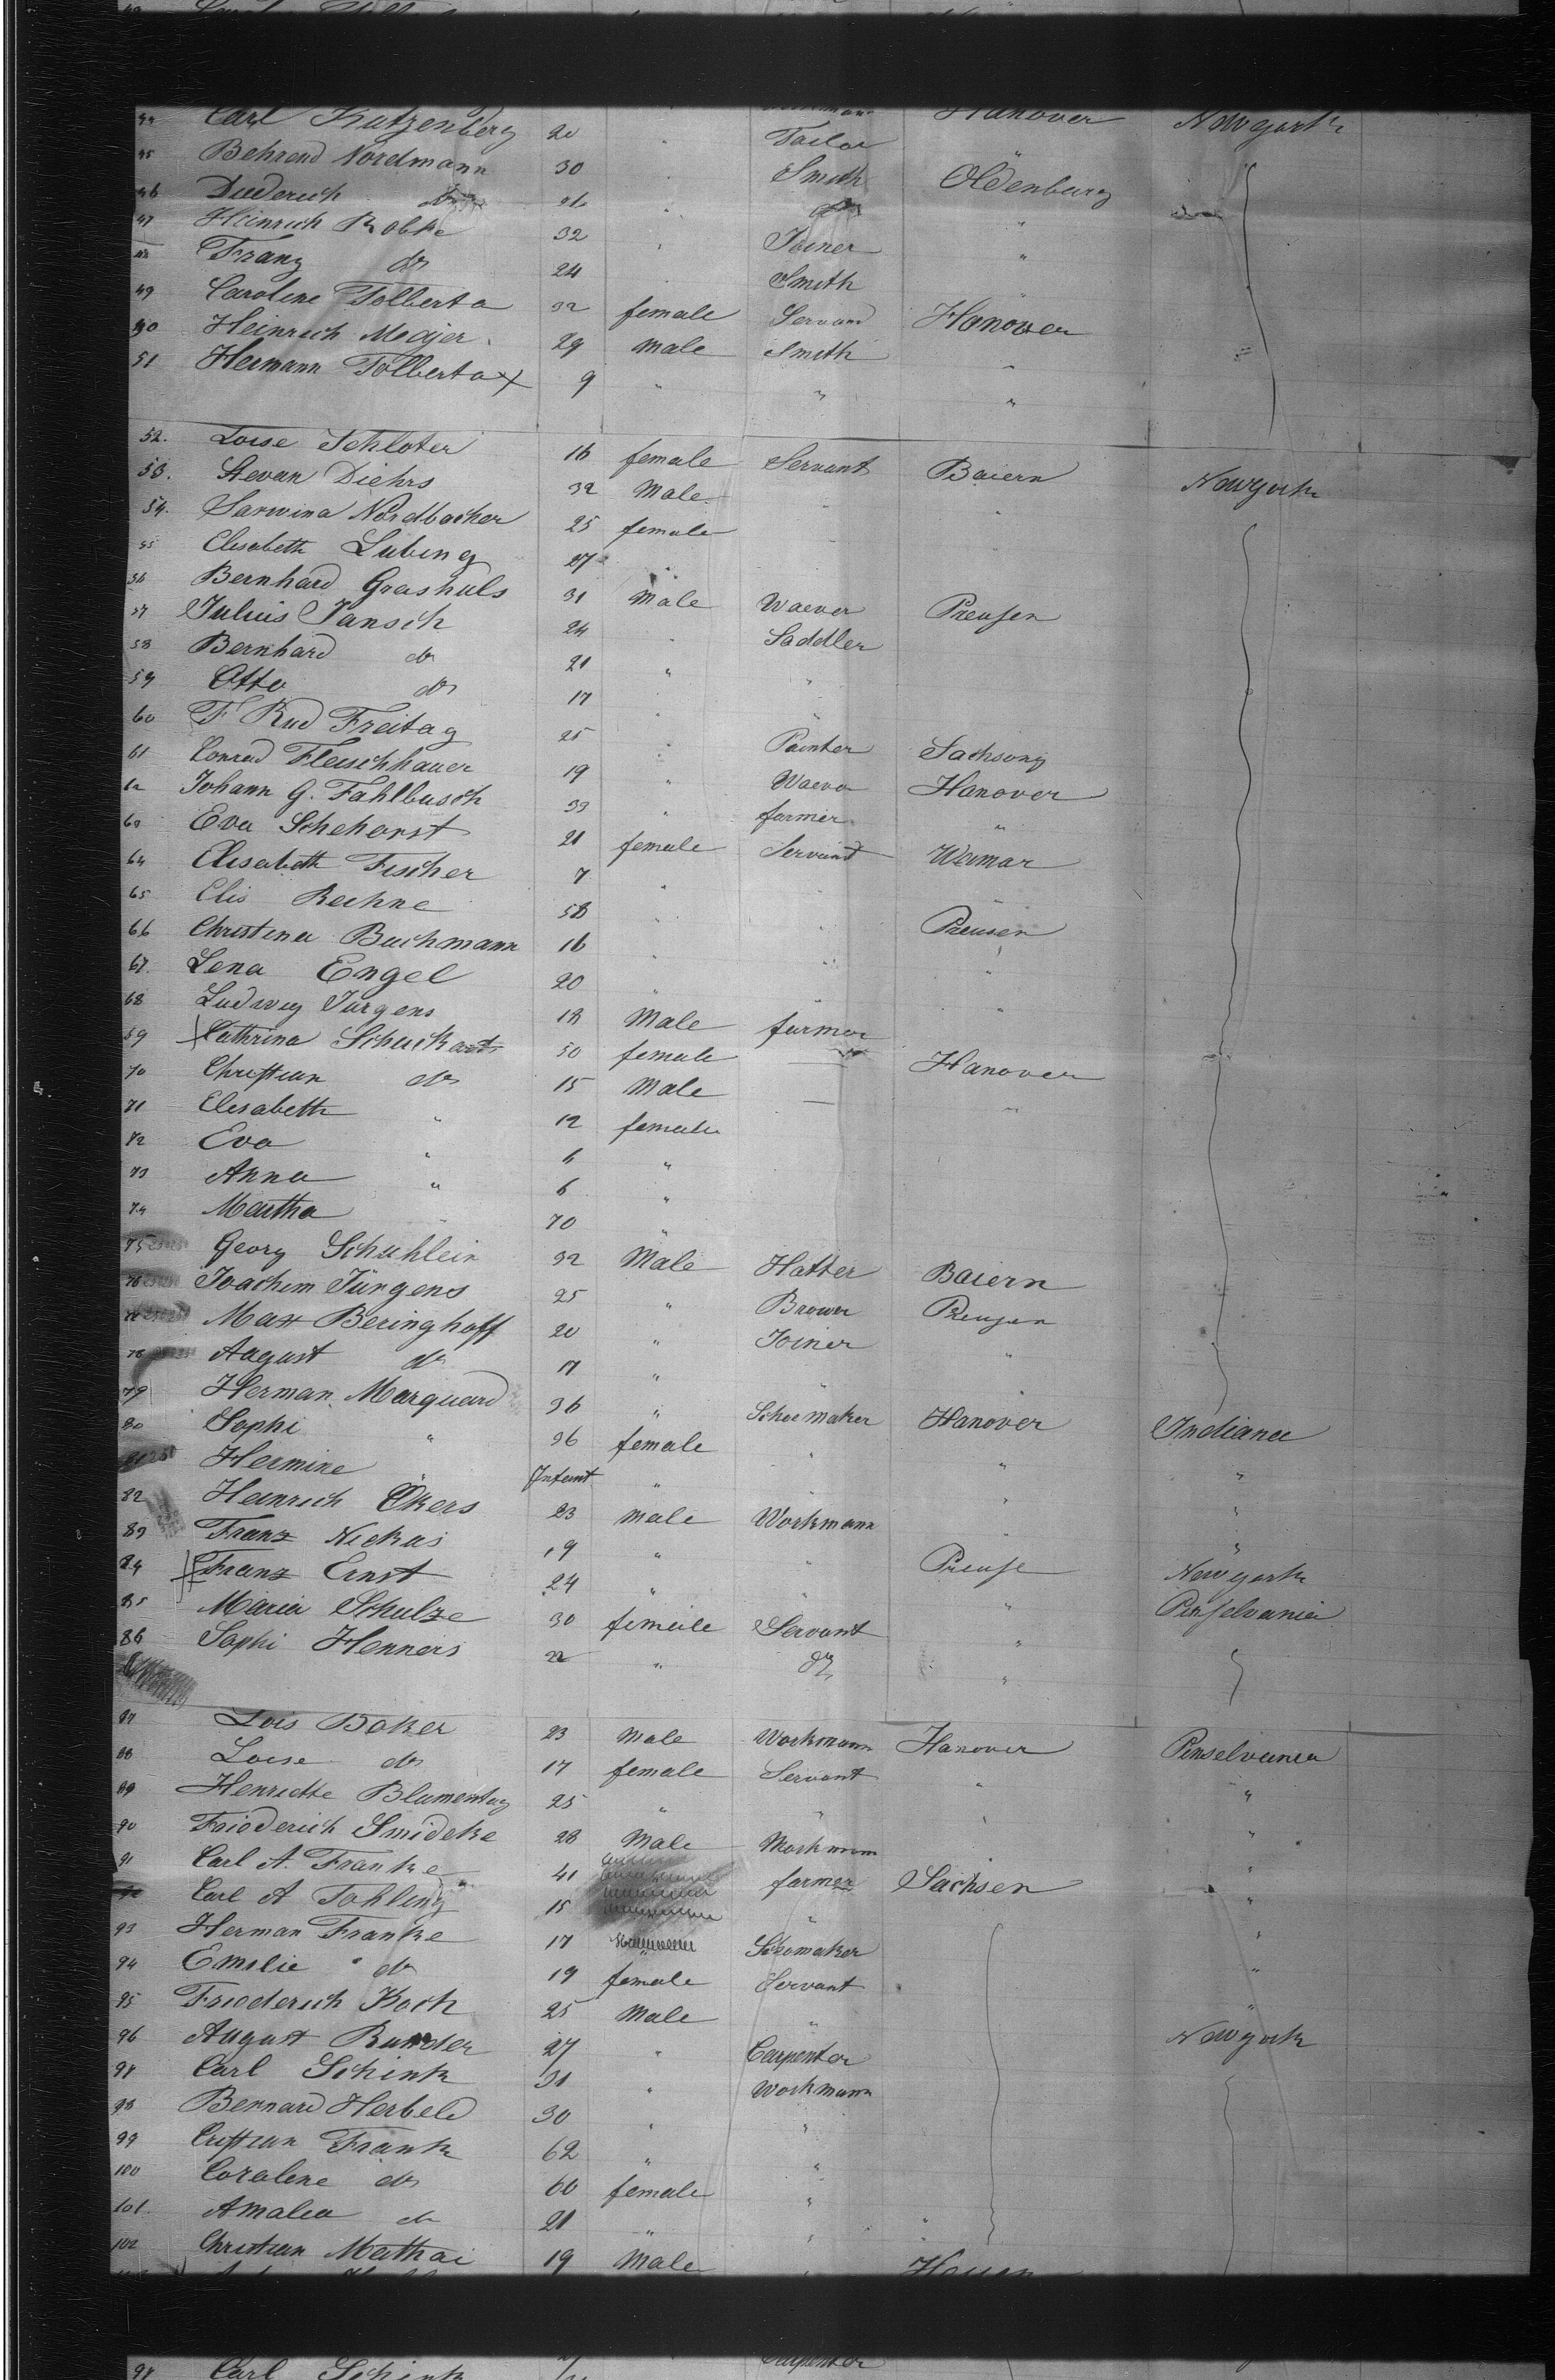 44 Carl Katzenberg 20 " Tailor Hanover Newyork
45 Behrend Nordmann 30 " Smith Oldenburg "
46 Diederich do 26 " do "
47 Heinrich Robke 32 " Joiner "
48 Franz do 24 Smith "
49 Caroline Tolberta 32 female Servand Hanover
50 Heinrich Meyer 29 male Smith "
51 Hermann Tolberta 9 " " "
52. Loise Schloter 16 female Servant Baiern Newyork
53. Stevan Diehrs 32 Male " "
54. Sarwina Nordbacher 25 female
55 Elisabeth Lubing 27 "
56 Bernhard Grashuls 31 Male Waever Preusen
57 Julius Jansch 24 " Saddler
58 Bernhard do 21 " "
59 Otto do 17 " "
60 F Rud Freitag 25 " Painter Sachsony
61 Conrad Fleischhauer 19 " Waever Hanover
62 Johann G. Fahlbusch 33 " farmer "
63 Eva Schehorst 21 female Servant Weimar
64 Elisabeth Fischer 7 " " "
65 Elis Rechne 58 " " Preusen
66 Christina Buchmann 16 " " "
67. Lena Engel 20 " " "
68 Ludwig Jurgens 18 Male farmer
69 Cathrina Schuckardt 50 female — Hanover
70 Christian do 15 Male — "
71 Elisabeth " 12 female
72 Eva " "
73 Anna " 6 "
74 Martha 70 "
75 Georg Schuhlein 32 Male Hatter Baiern
76 Joachim Jürgens 25 " Brower Preusen
77 Max Beringhoff 20 " Joiner "
78 August do 17 " " "
79 Herman Marquard 36 " Schoemaker Hanover Indiana
80 Sophi " 36 female " " "
81 Hermine " Infant " " "
82 Heinrich Ökers 23 male Workmann " "
83 Franz Nickas 19 " " Preuse Newyork
84 Franz Ernst 24 " " " Penselvania
85 Maria Schulze 30 female Servant "
86 Sophi Henners 22 " do "
87 Lois Baker 23 Male Workmann Hanover Penselvania
88 Loise do 17 female Servant " "
89 Henriette Blumentag 25 " " " "
90 Friederich Smideke 28 Male Workmann " "
91 Carl A. Franke 41 farmer Sachsen "
92 Carl A Tohling 15 " "
93 Herman Franke 17 Schomaker "
94 Emilie do 19 female Servant "
95 Friederich Koch 25 Male " Newyork
96 August Runder 27 " Carpenter
97 Carl Schink 31 " Workmann
98 Bernard Herbeld 30 " "
99 Cristian Frank 62 " "
100 Coralene do 60 female "
101. Amalia do 21 " " "
102 Christian Mathai 19 Male "
Carpenter
98 Carl Schink